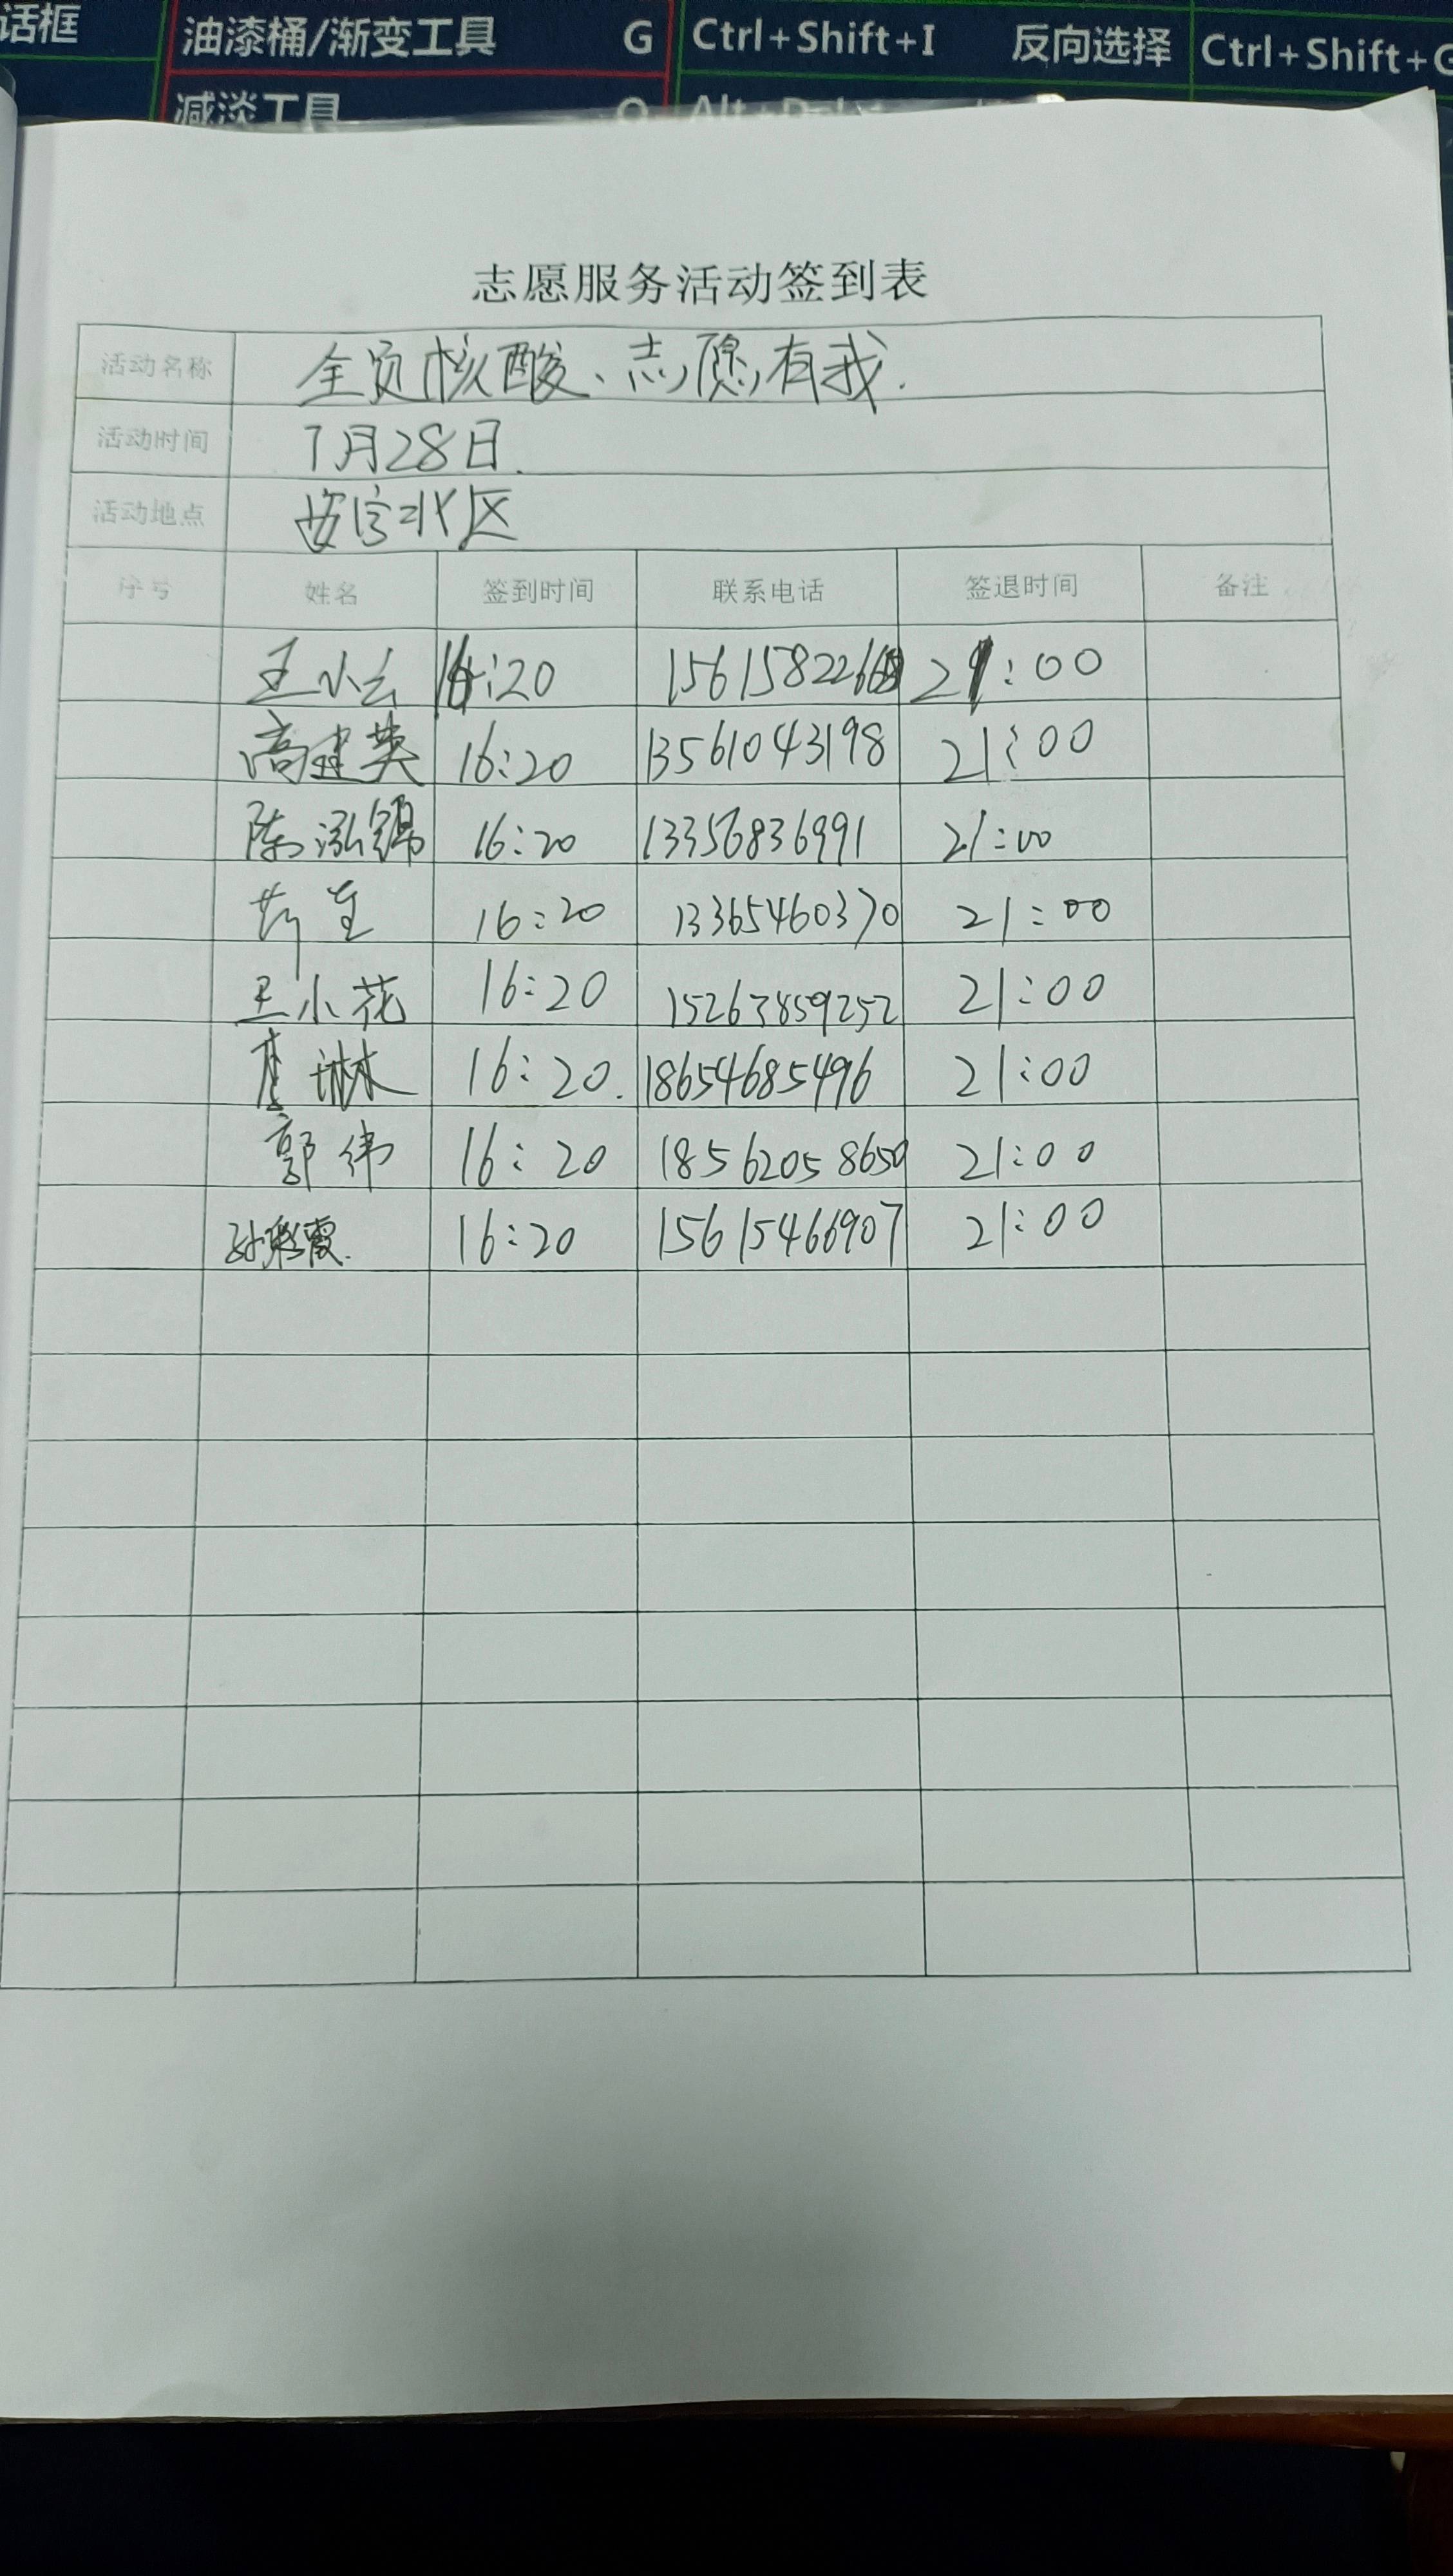 话框 油漆桶/渐变工具 G Ctrl+Shift+I 反向选择 Ctrl+Shift+G
减淡工具 O
志愿服务活动签到表
活动名称 全员核酸、志愿有我.
活动时间 7月28日.
活动地点 安宁北区
序号 姓名 签到时间 联系电话 签退时间 备注
王小云 16:20 21:00
高建英 16:20 13561043198 21:00
陈泓锦 16:20 13356836991 21:00
16:20 13365460370 21:00
王小花 16:20 15263859252 21:00
李琳 16:20. 18654685496 21:00
郭伟 16:20 18562058650 21:00
孙彩霞. 16:20 15615466907 21:00